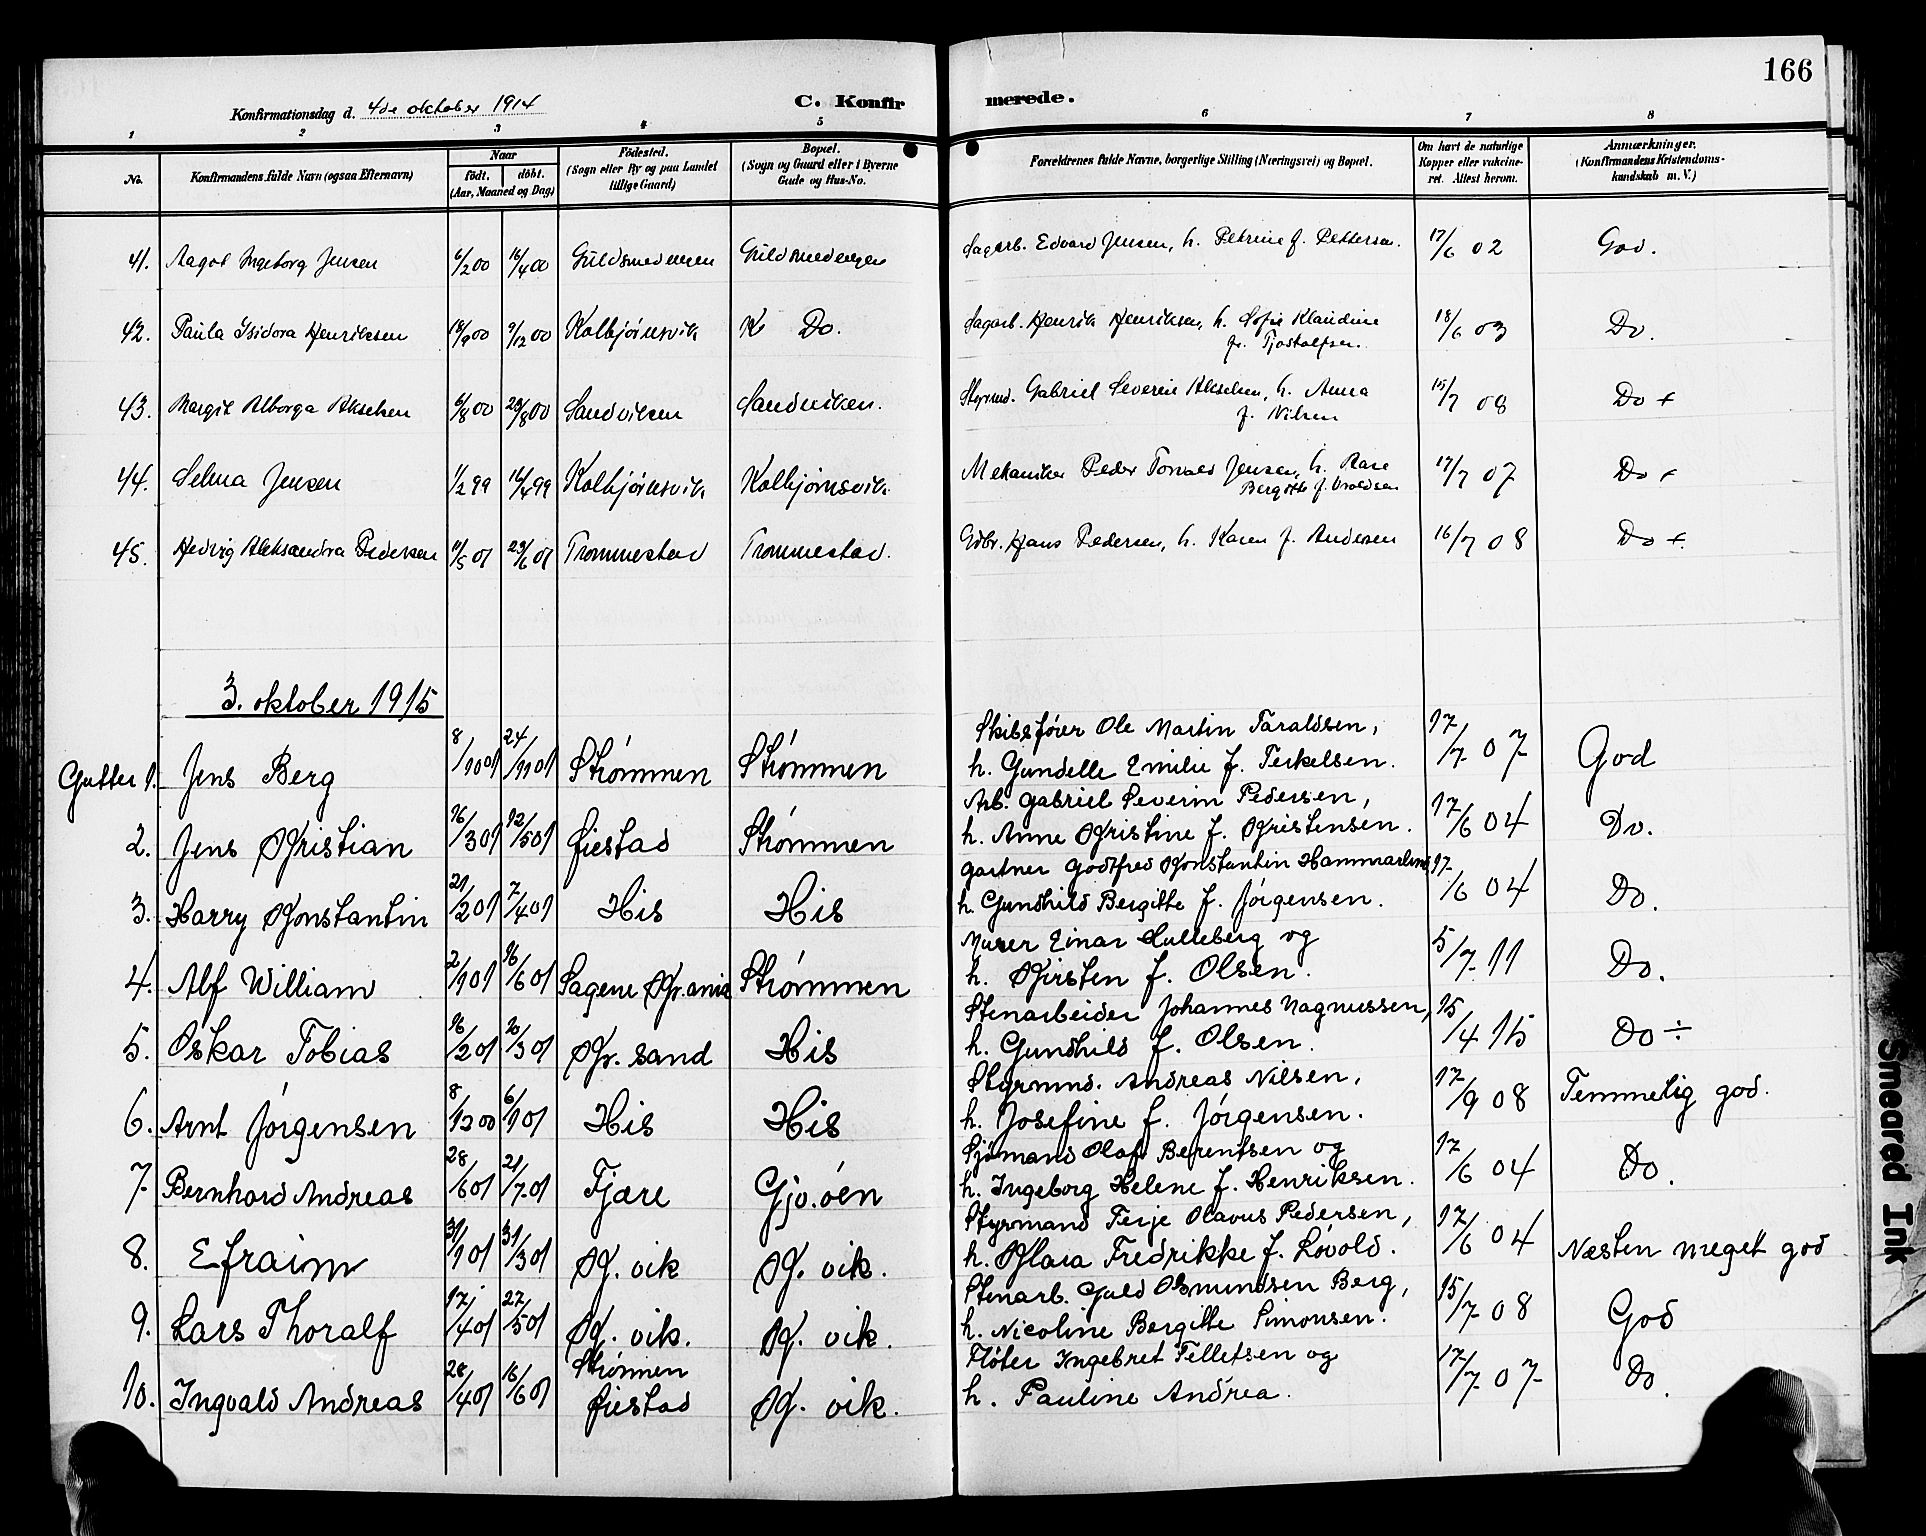 166
Konfirmationsdag d. 4de oktober 1914
C. Konfirmerede.
1 2 3 4 5 6 7 8
No.
Konfirmandens fulde Navn (ogsaa Efternavn)
Naar
født. døbt.
(Aar, Maaned og Dag)
Fødested.
(Sogn eller By og paa Landet
tillige Gaard)
Bopæl.
(Sogn og Gaard eller i Byerne
Gade og Hus-No.
Forældrenes fulde Navne, borgerlige Stilling (Næringsvei) og Bopæl.
Om havt de naturlige
Kopper eller vakcine-
ret. Attest herom.
Anmærkninger.
(Konfirmandens Kristendoms-
kundskab m. V.)
41. Aagot Ingeborg Jensen 6/2 00 16/4 00 Guldsmedengen Guldsmedengen Sagarb. Edvard Jensen, h. Petrine f. Pettersen. 17/6 02 God.
42. Paula Isidora Henriksen 18/9 00 9/12 00 Kolbjørnsvik K Do. Sagarb. Henrik Henriksen, h. Sofie Klaudine
f. Tjostolfsen. 18/6 03 Do.
43. Margit Alborga Akselsen 6/8 00 28/8 00 Sandviken Sandviken. Styrmd. Gabriel Severin Akselsen, h. Anna
f. Nilsen 15/7 08 Do +
44. Selma Jensen 1/2 99 16/4 99 Kolbjørnsvik Kolbjørnsvik. Mekaniker Peder Tomas Jensen, h. Aase
Bergitte f. 17/7 07 Do +
45. Hedvig Aleksandra Pedersen 11/5 01 23/6 01 Trommestad Trommestad. Gdbr. Hans Pedersen, h. Karen f. Andersen 16/7 08 Do +
3. oktober 1915
Gutter 1. Jens Berg 8/10 01 24/11 01 Strømmen Strømmen Skibsfører Ole Martin Taraldsen,
h. Gundelle Emilie f. Terkelsen. 17/7 07 God
2. Jens Kristian 16/3 01 12/5 01 Fiestad Strømmen Arb. Gabriel Severin Pedersen,
h. Anne Kristine f. Kristensen. 17/6 04 Do.
3. Harry Konstantin 21/2 01 7/4 01 His His Gartner Godtfred Konstantin Hammarlund
h. Gundhild Bergitte f. Jørgensen. 17/6 04 Do.
4. Alf William 2/1 01 16/6 01 Sagene Kr.ania Strømmen Murer Einar Hulleberg og
h. Kirsten f. Olsen. 5/7 11 Do.
5. Oskar Tobias 16/2 01 20/3 01 Kr. sand His Stenarbeider Johannes Magnussen,
h. Gundhild f. Olsen. 15/4 15 Do ÷
6. Arnt Jørgensen 8/12 00 6/1 01 His His Styrmd. Andreas Nilsen,
h. Josefine f. Jørgensen. 17/9 08 Temmelig god.
7. Bernhard Andreas 28/6 01 21/7 01 Fjære Gjv.øen Sjømand Olaf Berentsen og
h. Ingeborg Helene f. Henriksen. 17/6 04 Do.
8. Efraim 31/1 01 31/3 01 K. vik K. vik. Styrmand Terje Olavus Pedersen,
h. Klara Fredrikke f. Løvold. 17/6 04 Næsten meget god
9. Lars Thoralf 17/4 01 27/5 01 K. vik. K. vik. Stenarb. Guld Osmundsen Berg,
h. Nicoline Bergitte Simonsen. 15/7 08 God
10. Ingvald Andreas 28/4 01 16/6 01 Strømmen
Fiestad K. vik. Fløter Ingebret Telletsen og
h. Pauline Andrea. 17/7 07 Do.
Smeared Ink